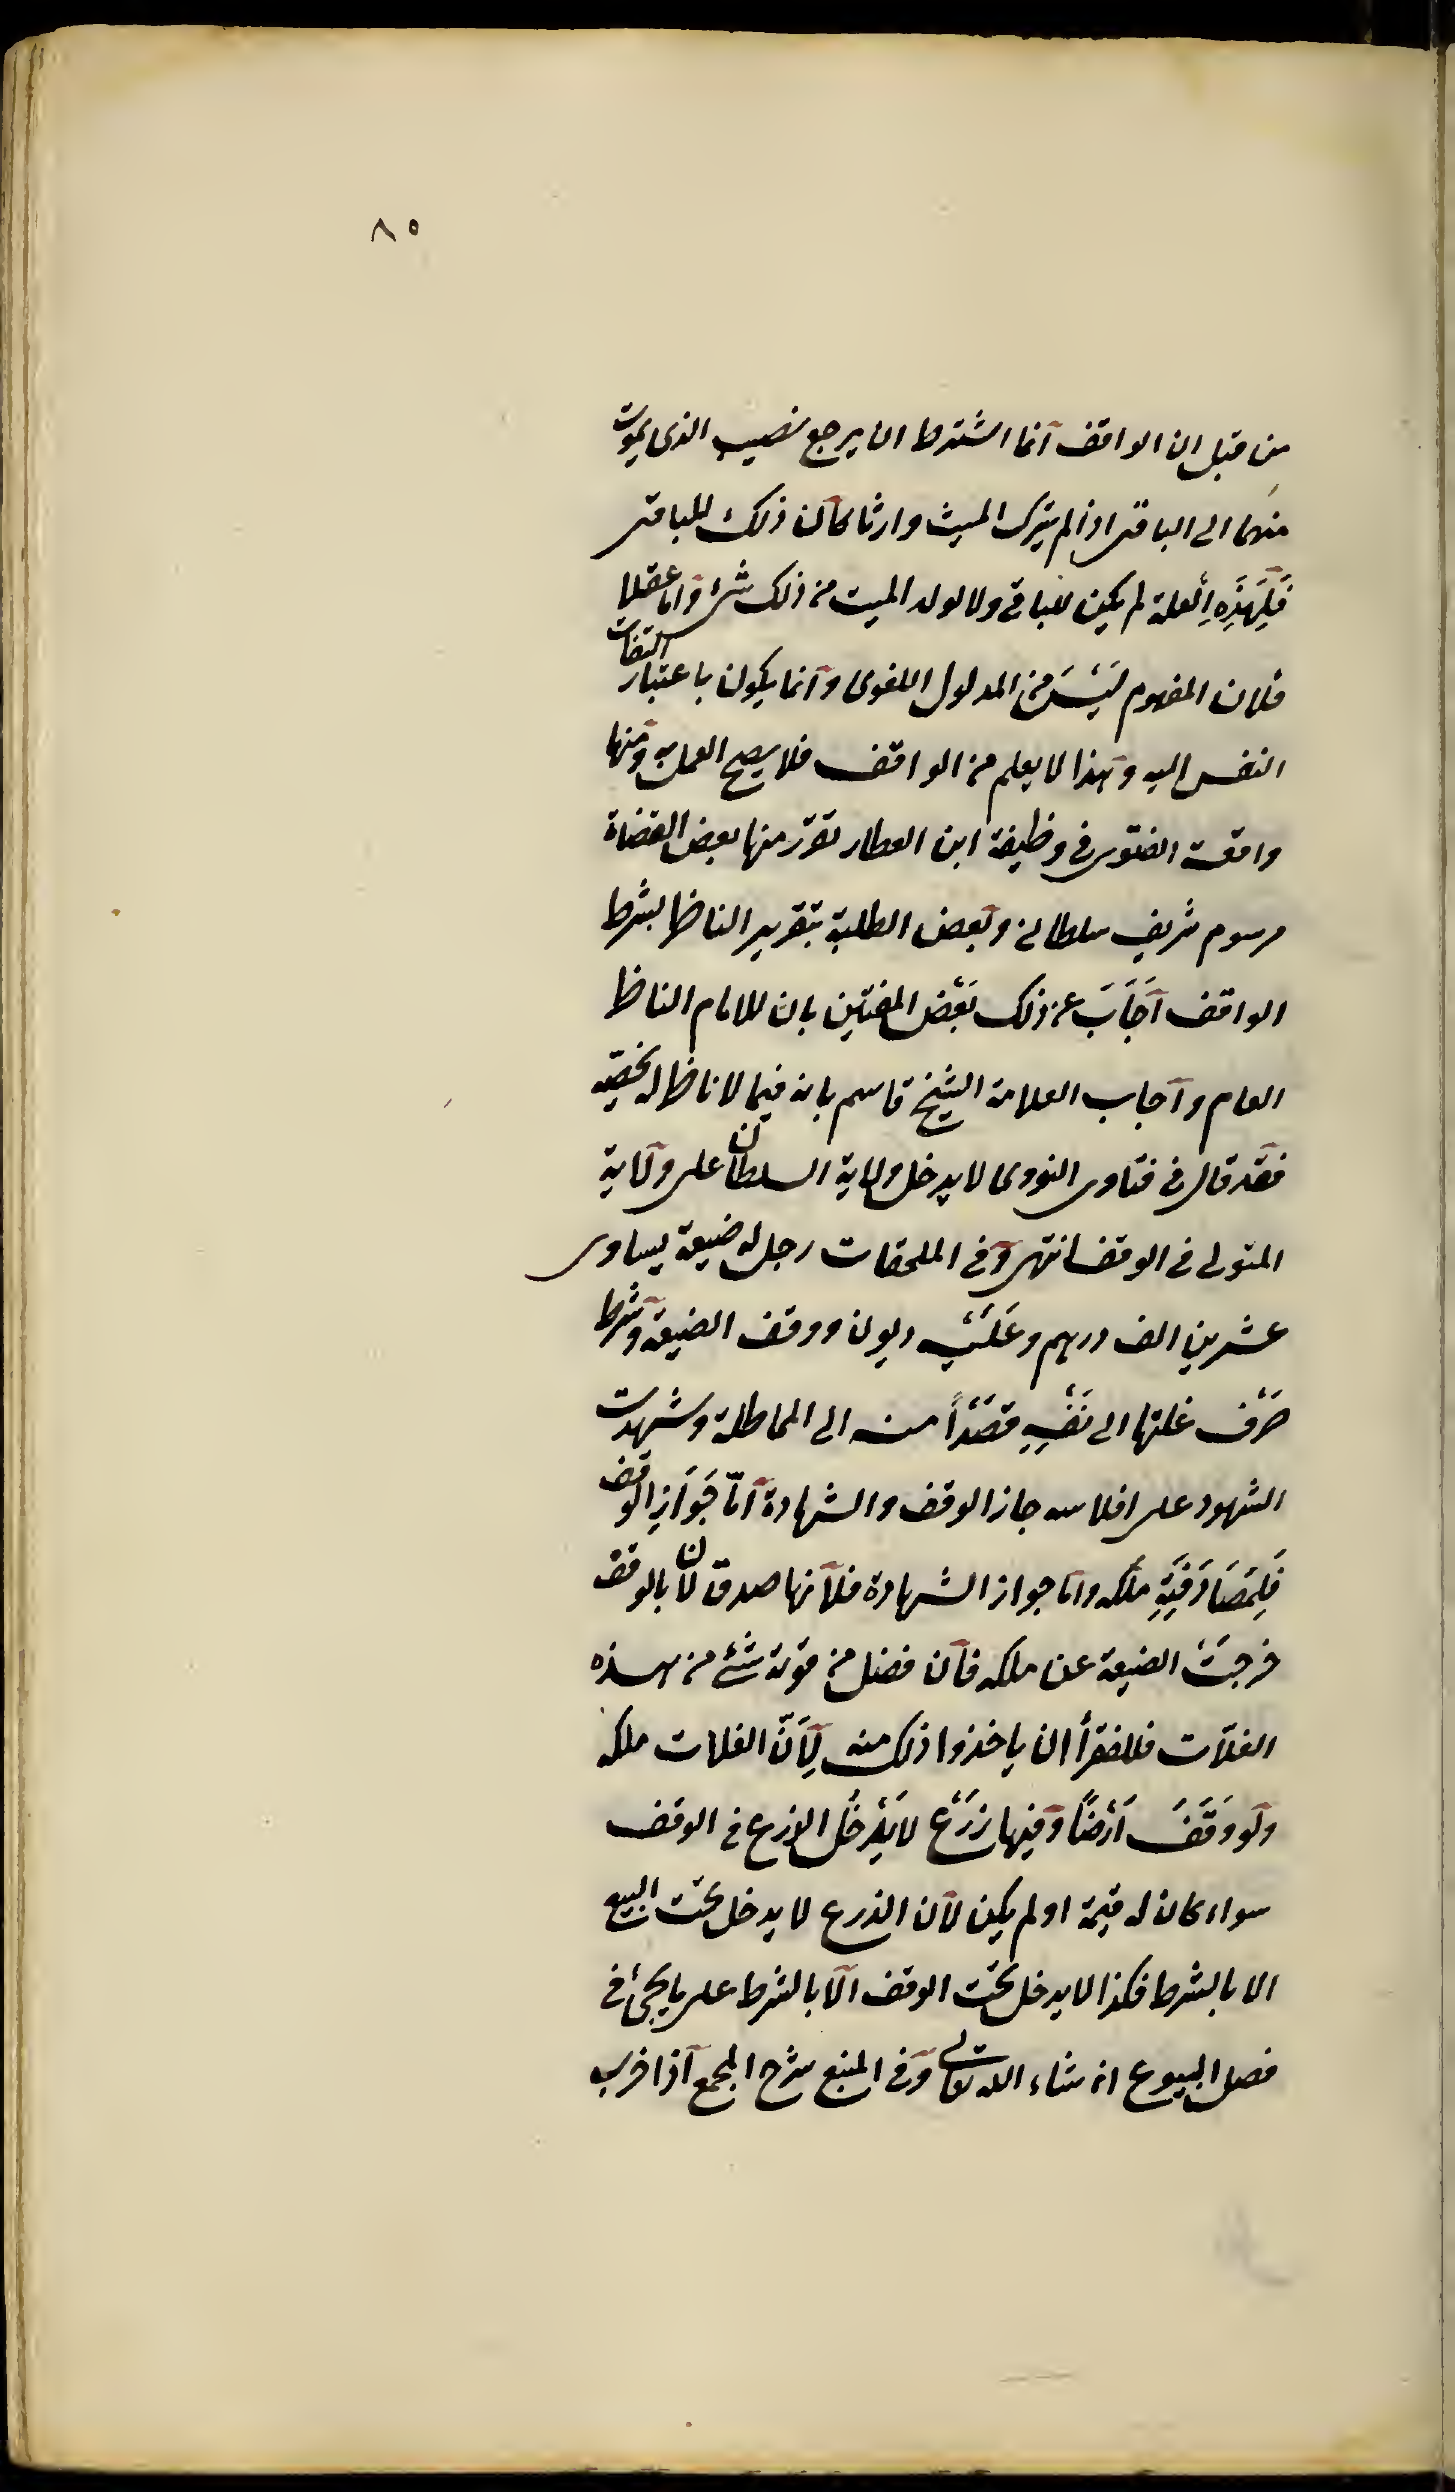 ٨٥
من قبل ان الواقف انما اشترط ان يرجع نصيب الذى يموت
منهما الى الباقى اذا لم يترك الميت وارثا كان ذلك للباقى
فَلِهَذِهِ العلة لم يكن للباقى ولا لولد الميت من ذلك شئ واما عقلا
فلان المفهوم لَيْسَ من المدلول اللغوى وانما يكون باعتبار التفات
النفس اليه وهذا لا يعلم من الواقف فلا يصح العمل به ومنها
واقعة الفتوى فى وظيفة ابن العطار تقرر منها بعض القضاة
مرسوم شريف سلطانى وبعض الطلبة بتقرير الناظر بشرط
الواقف اَجَابَ عن ذلك بَعْض المفتين بان للامام الناظر
العام واجاب العلامة الشيخ قاسم بانه فيما لا ناظر له يخصه
فقد قال فى فتاوى النووى لا يدخل ولاية السلطان على ولاية
المتولى فى الوقف انتهى وفى الملحقات رجل له ضيعة يساوى
عشرين الف درهم وعَلَيْه ديون ووقف الضيعة وشرط
صَرْف غلتها الى نَفْسِهِ قَصْداً منه الى المماطلة وشهدت
الشهود على افلاسه جاز الوقف والشهادة امّا جَوَازِ الوقف
فَلِمُصَادَفَتِهِ ملكه واما جواز الشهادة فلانها صدق لان بالوقف
خرجَتْ الضيعة عن ملكه فان فضل من قوته شئ من هذه
الغلّات فللفقرأ ان ياخذوا ذلك منه لِاَنّ الغلات ملكه
ولو وَقَفَ اَرْضاً وفيها زَرْع لا يَدْخُل الزرع فى الوقف
سواء كان له قيمة او لم يكن لان الزرع لا يدخل تحت البيع
الا بالشرط فكذا لا يدخل تحت الوقف الا بالشرط على ما يجئ فى
فصل البيوع ان شاء الله تعالى وفى المنبع شرح المجمع اذا خرب